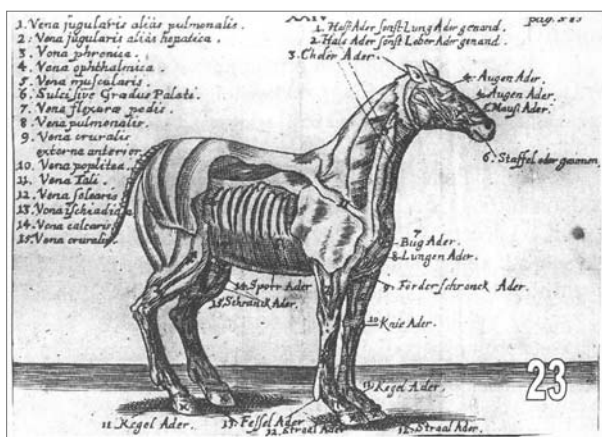 1. Vena jugularis aliàs pulmonalis.
2. Vena jugularis aliàs hepatica.
3. Vona phronica.
4. Vena ophthalmica
5. Vena muscularis.
6. Sulci sive Gradus Palati.
7. Vena flexuræ pedis.
8. Vena pulmonalis.
9. Vena cruralis
externa anterior.
10. Vena poplitea.
11. Vena Tali.
12. Vena solearis
13. Vona ischiadica
14. Vena calcaris
15. Vena cruralis
XXIV
pag. 585
1. Halß Ader sonst Lung Ader genand.
2. Hals Ader sonst Leber Ader genand.
3. Choler Ader.
4. Augen Ader.
5. Augen Ader.
Mauß Ader.
6. Staffel oder
7
Bug Ader.
8. Lungen Ader.
9. Förder schronck Ader.
10
Knie Ader.
14. Sporr Ader
15. Schranck Ader.
11. Kegel Ader.
23
11. Kegel Ader.
13. Fessel Ader
12. Straal Ader
12. Straal Ader